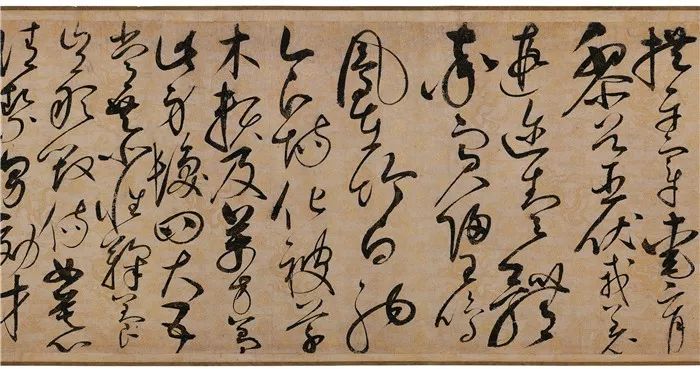 拱平章愛育
黎首臣伏戎羌
遐邇壹體
率賓歸王鳴
鳳在竹白駒
食場化被草
木賴及萬方蓋
此身髮四大五
常恭惟鞠養
豈敢毀傷女慕
清潔男效才